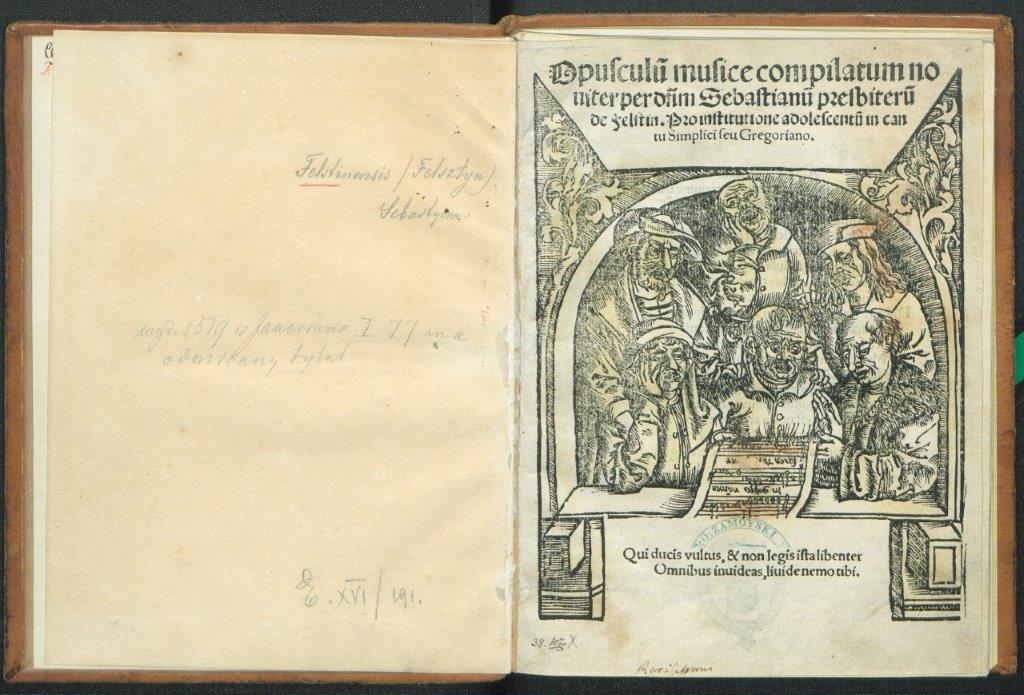 Felstinensis / Felsztyn)
Sebastyan
wyd. 1519 w Janociana I 77 ma
odmienny tytuł
E. XVI / 191.
Opusculū musice compilatum no
uiter per dñm Sebastianū presbiterū
de Felstin. Pro institutione adolescentū in can
tu Simplici seu Gregoriano.
O.ZAMOYSKI
Qui ducis vultus, & non legis ista libenter
Omnibus inuideas, liuide nemo tibi.
38.